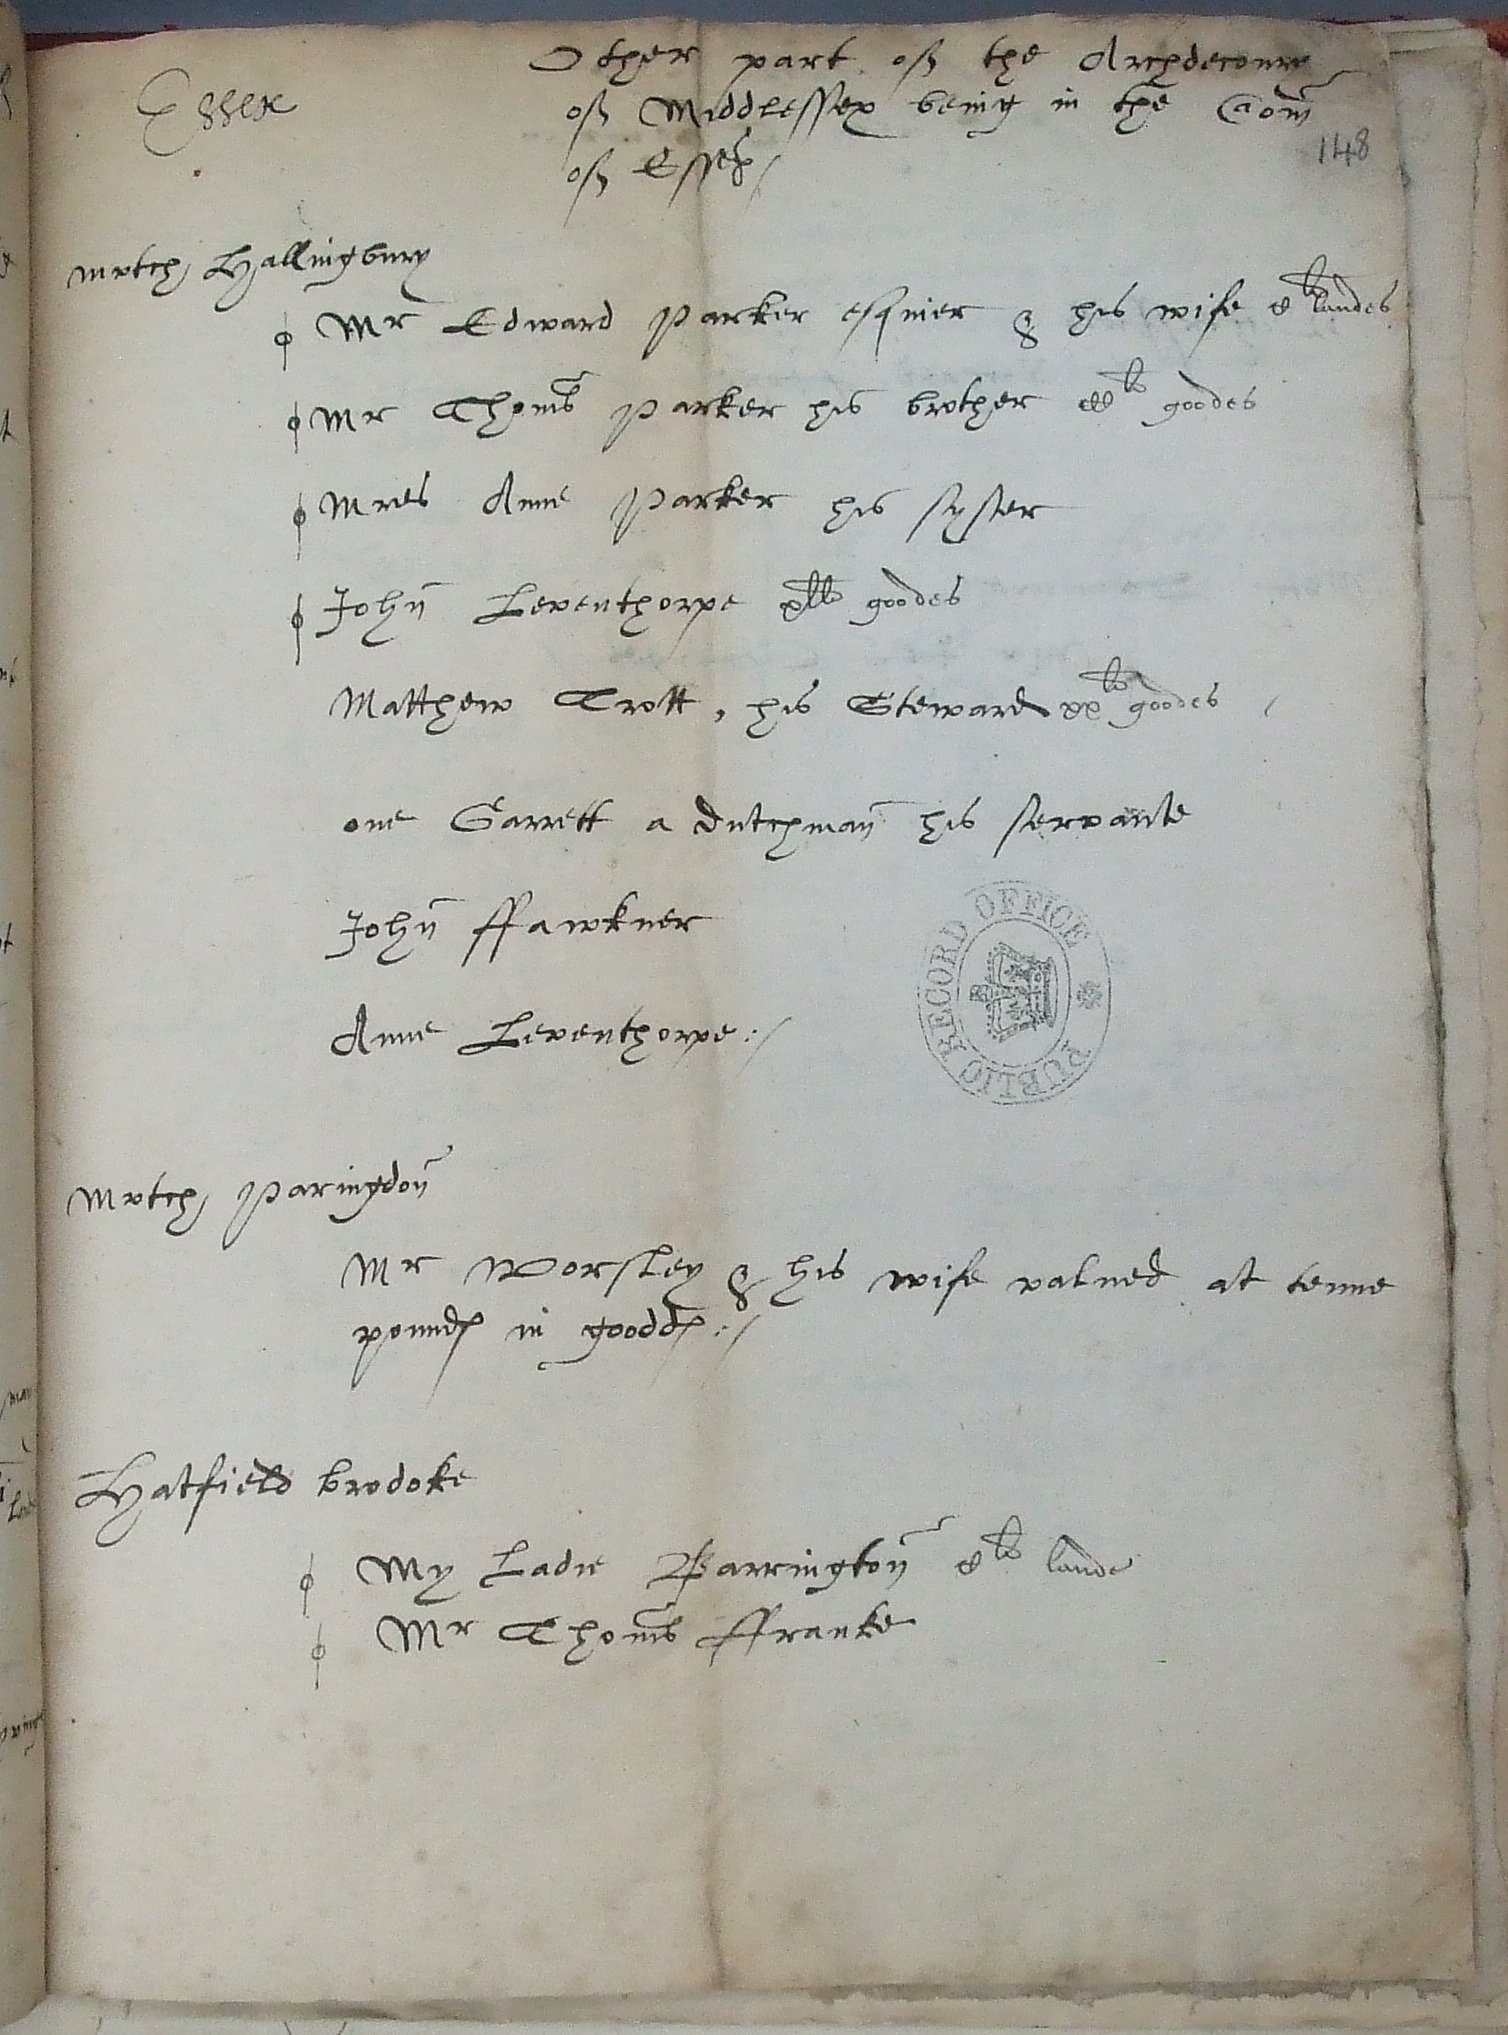 Essex
Other part of the Archdeconry
of Middlessex being in the Com̄
of Essex /
148
mvtch Hallingbury
Mr Edward Parker esquier & his wife lb landes
Mr Thom̄s Parker his brother lb goodes
Mres Anne Parker his syster
John̄ Leventhorpe xllb goodes
Matthew Trott, his Steward xxlb goodes /
one Garrett a dutchman̄ his servante
John̄ ffawkner
Anne Leventhorpe :/
Mvtch Paringdon̄
Mr Worsley & his wife valued at tenne
poundes in gooddes :/
Hatfield brodoke
My Ladie Barrington̄ lb lande
Mr Thom̄s ffranke
PUBLIC RECORD OFFICE